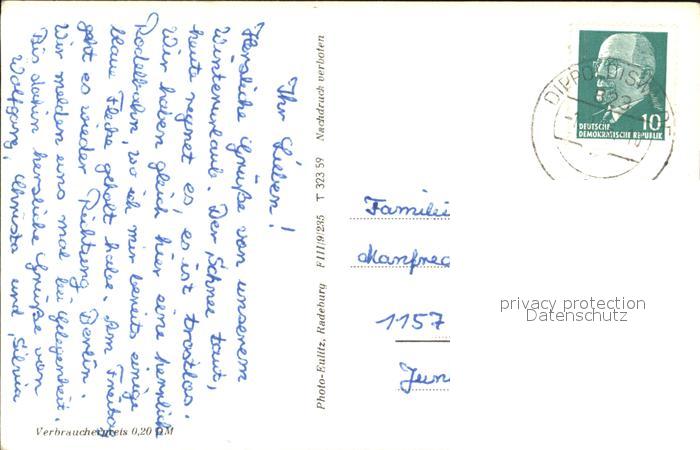 Ihr Lieben!
Herzliche Grüße von unserem
Winterurlaub. Der Schnee taut,
heute regnet es, es ist trostlos.
Wir haben gleich hier eine herrliche
Rodelbahn, wo ich mir bereits einige
blaue Flecke geholt habe. Am Freitag
geht es wieder Richtung Berlin.
Wir melden uns mal bei Gelegenheit.
Bis dahin herzliche Grüße von
Wolfgang, Christa und Silvia
Verbraucherpreis 0,20 DM
Photo-Eulitz, Radeburg F III/9/235 T 323 59 Nachdruck verboten
DIPPOLDISW
823
10
DEUTSCHE
DEMOKRATISCHE REPUBLIK
Familie
Manfred
1157
privacy protection
Datenschutz